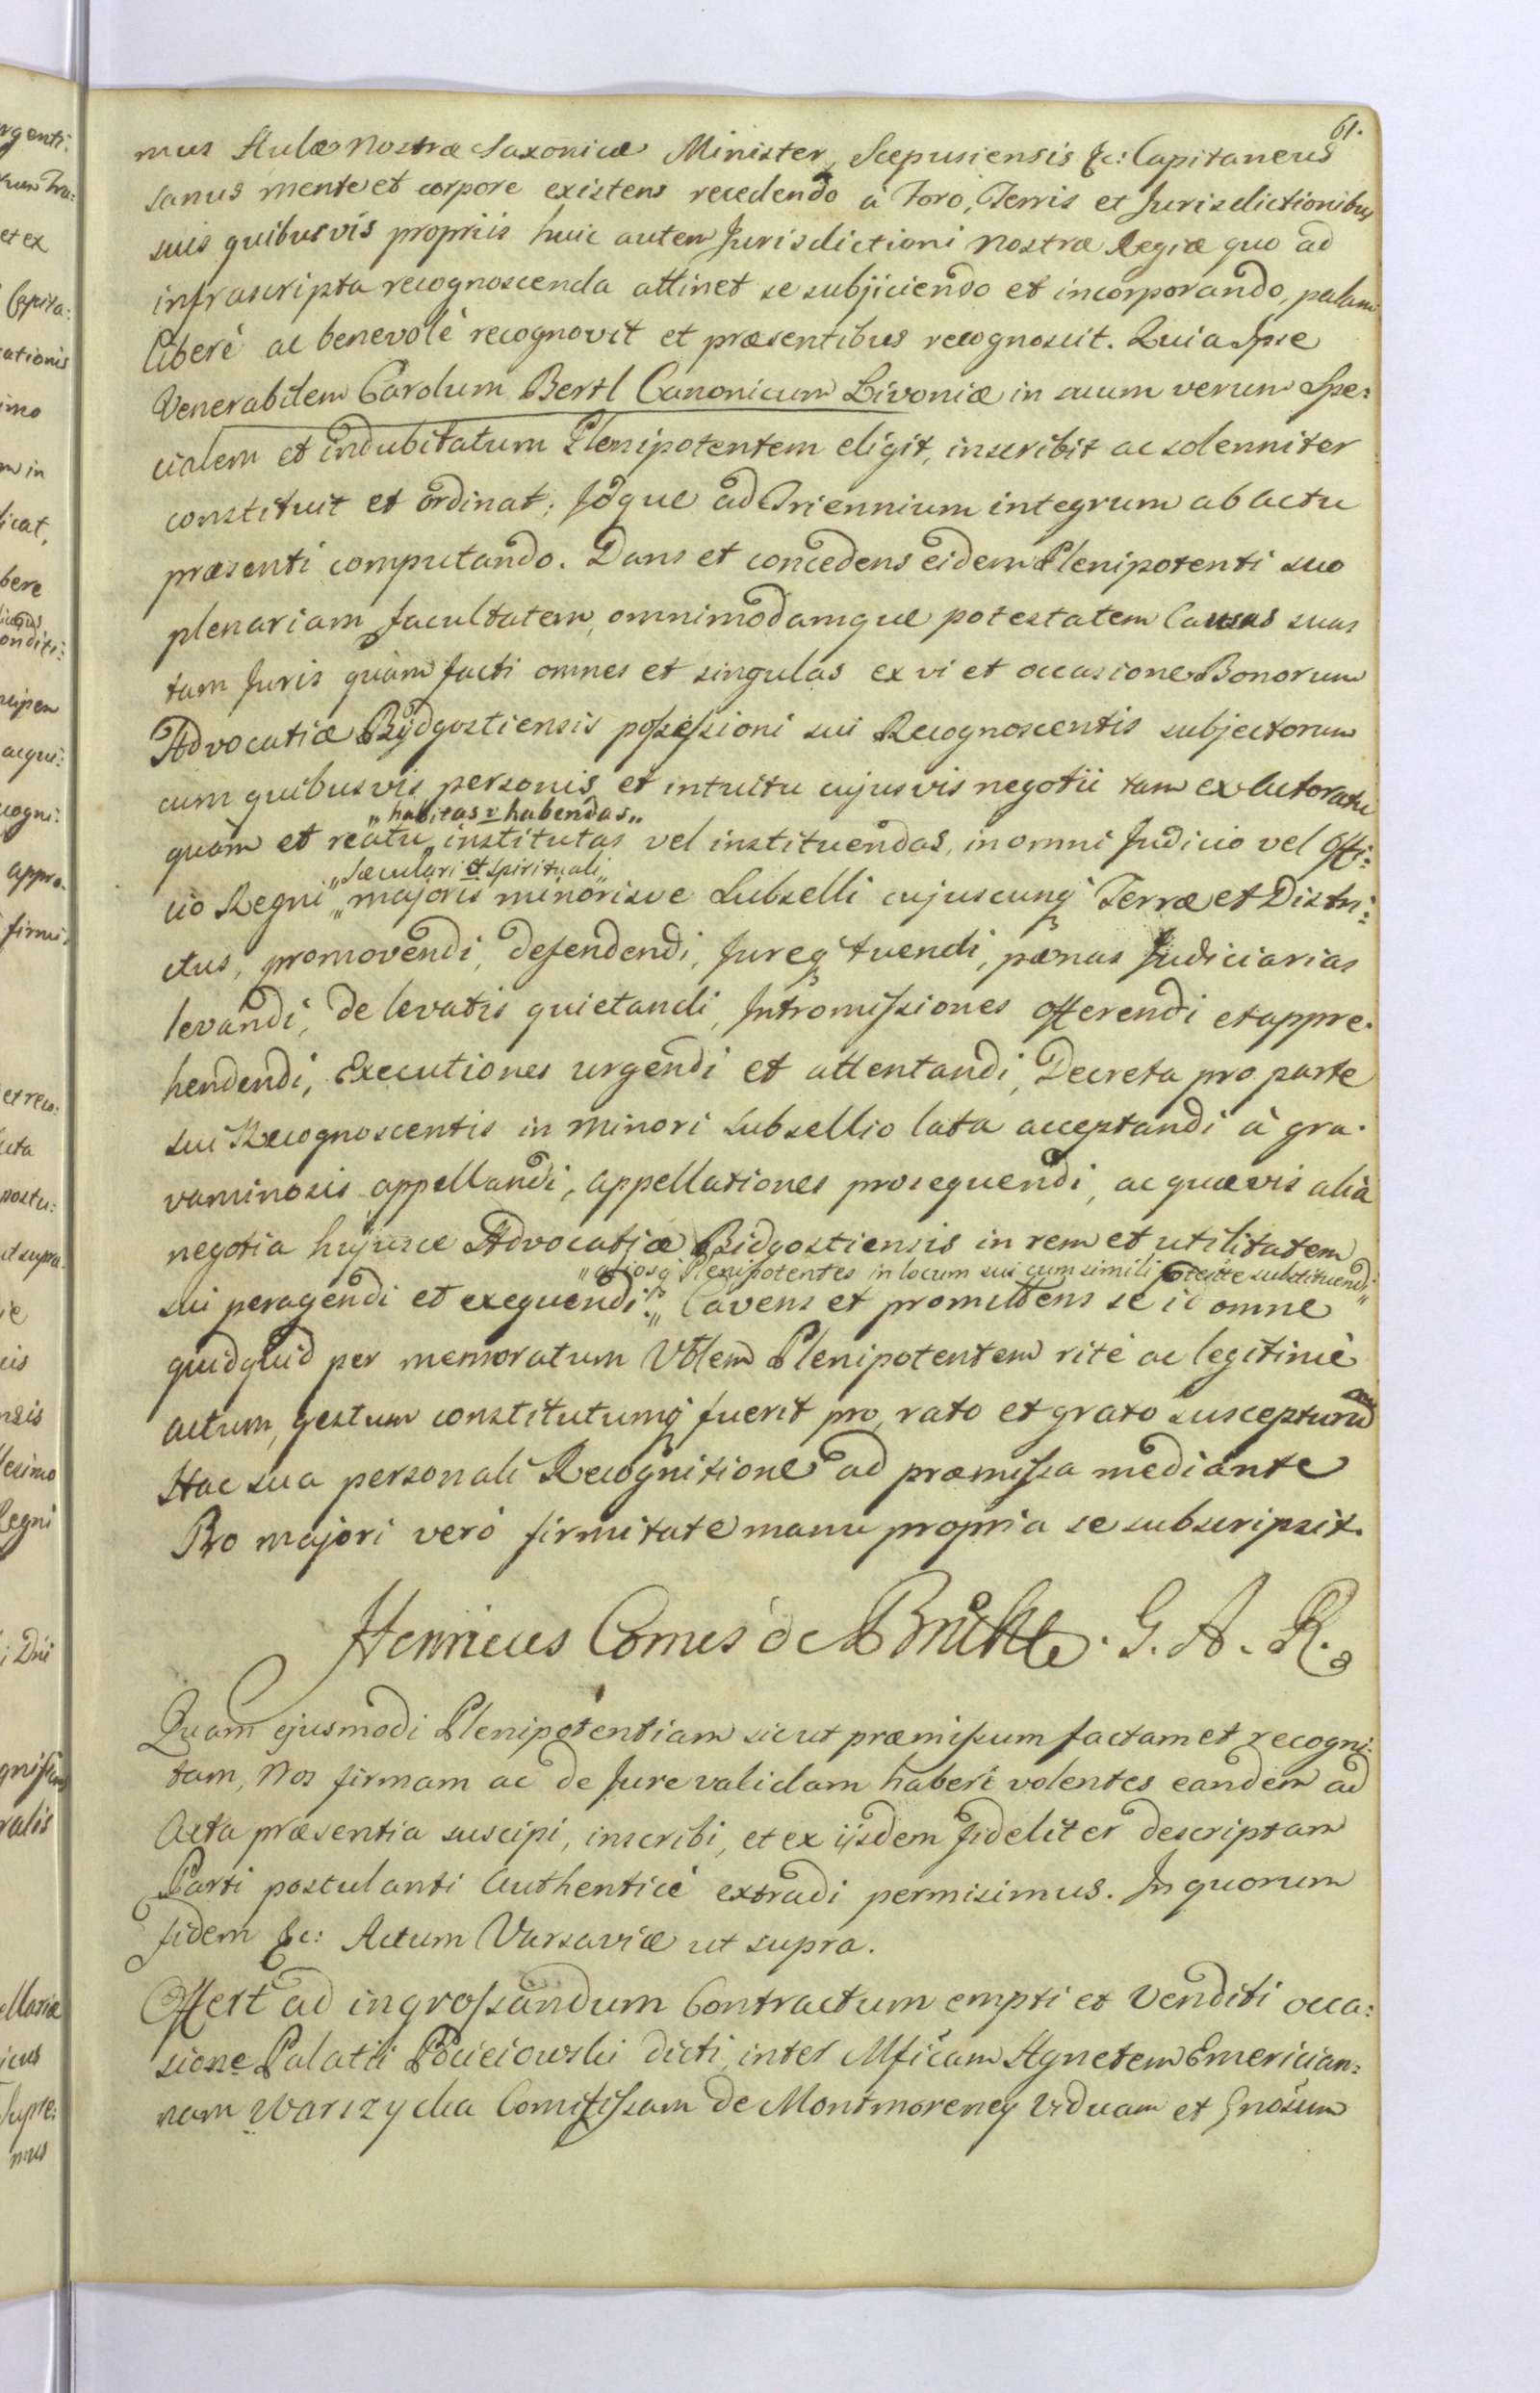 61.
mus Aulæ Nostræ Saxonicæ Minister, Scepusiensis &c: Capitaneus
sanus mente et corpore existens recedendo à Foro, Terris et Jurisdictionibus
suis quibusvis propriis huic autem Jurisdictioni Nostræ Regiæ quo ad
infrascripta recognoscenda attinet se subjiciendo et incorporando, palam
liberè ac benevolè recognovit et præsentibus recognoscit. Quia Ipse
Venerabilem Carolum Bertl Canonicum Livoniæ in suum verum Spe:
cialem et indubitatum Plenipotentem eligit, inscribit ac solenniter
constituit et ordinat; Idque ad Triennium integrum ab actu
præsenti computando. Dans et concedens eidem Plenipotenti suo
plenariam facultatem, omnimodamque potestatem Causas suas
tam Juris quàm facti omnes et singulas ex vi et occasione Bonorum
Advocatiæ Bydgostiensis possessioni sui Recognoscentis subjectorum
cum quibusvis personis et intuitu cujusvis negotii tam ex Actoratu
„habitas v habendas„
quàm et reatu „institutas vel instituendas, in omni Judicio vel Offi:
„Sæculari et Spirituali„
cio Regni „majoris minorisve Subselli cujuscunq Terræ et Distri:
ctus, promovendi, defendendi, Jureq tuendi, pænas Judiciarias
levandi, de levatis quietandi, Intromissiones offerendi et appre.
hendendi, Executiones urgendi et attentandi, Decreta pro parte
sui Recognoscentis in minori subsellio lata acceptandi à gra.
vaminosis appellandi, appellationes prosequendi, ac quævis alia
negotia hujusce Advocatiæ Bidgostiensis in rem et utilitatem
„aliosq Plenipotentes in locum sui cum simili potestte substituendi„
sui peragendi et exequendi. „Cavens et promittens se id omne
quidquid per memoratum Vblem Plenipotentem ritè ac legitimè
actum, gestum constitutumq fuerit pro rato et grato suscepturum
Hac sua personali Recognitione ad præmissa mediante
Pro majori verò firmitate manu propria se subscripsit.
Henricus Comes de Brühl. G. A. R.
Quam ejusmodi Plenipotentiam sicut præmissum factam et recogni:
tam, Nos firmam ac de Jure validam haberi volentes eandem ad
Acta præsentia suscipi, inscribi, et ex iisdem fideliter descriptam
Parti postulanti Authenticè extradi permisimus. In quorum
fidem &c: Actum Varsaviæ ut supra.
Offert ad ingrossandum Contractum empti et Venditi occa:
sione Palatii Pociciowski dicti, inter Mficam Agnetem Emerician:
nam Warszycka Comitissam de Montmorency Viduam et Gnosum